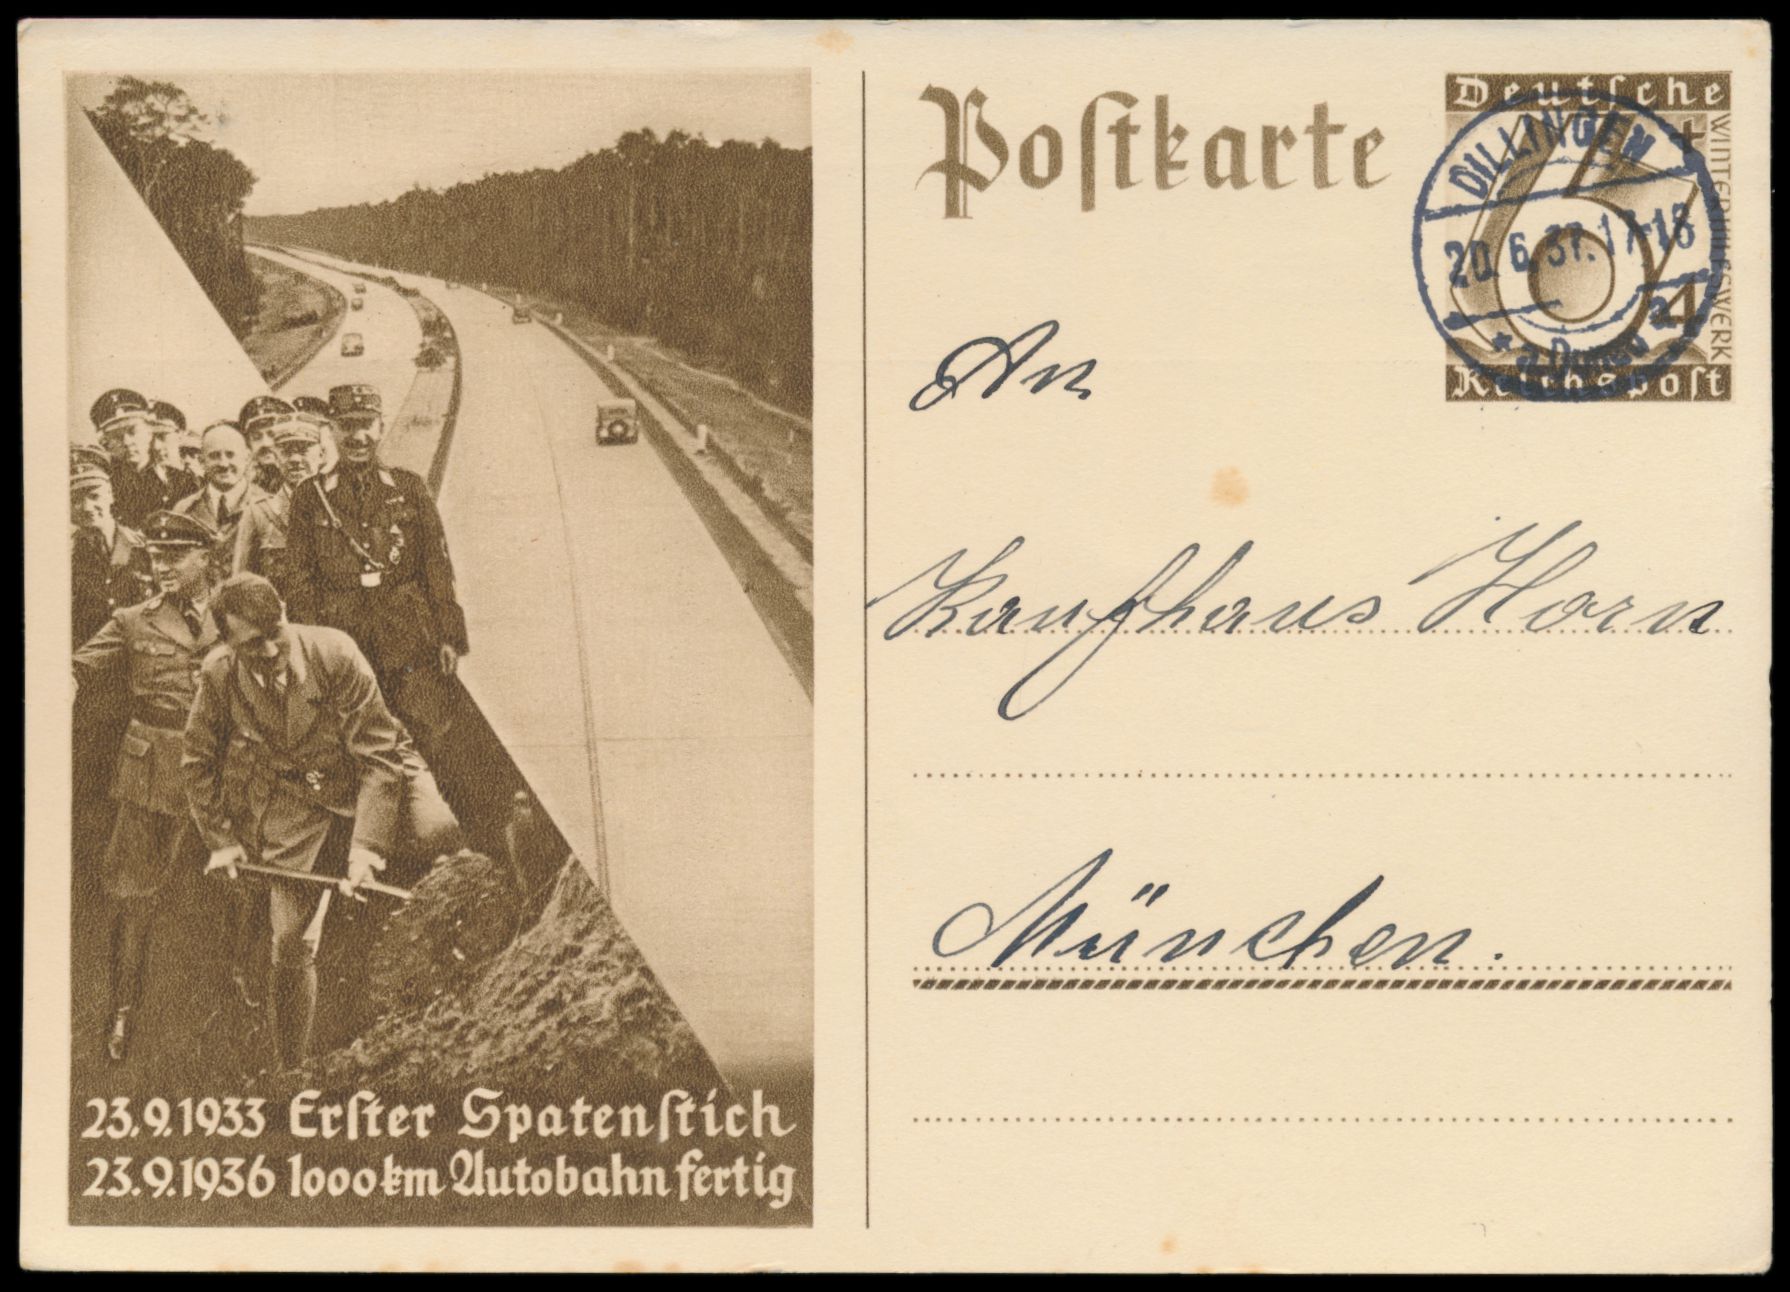 Postkarte
Deutsche
6
+
4
WINTERHILFSWERK
Reichspost
DILLINGEN
20.6.37.17-18
a
* a. Donau
An
Kaufhaus Horn
München.
23.9.1933 Erster Spatenstich
23.9.1936 1000km Autobahn fertig